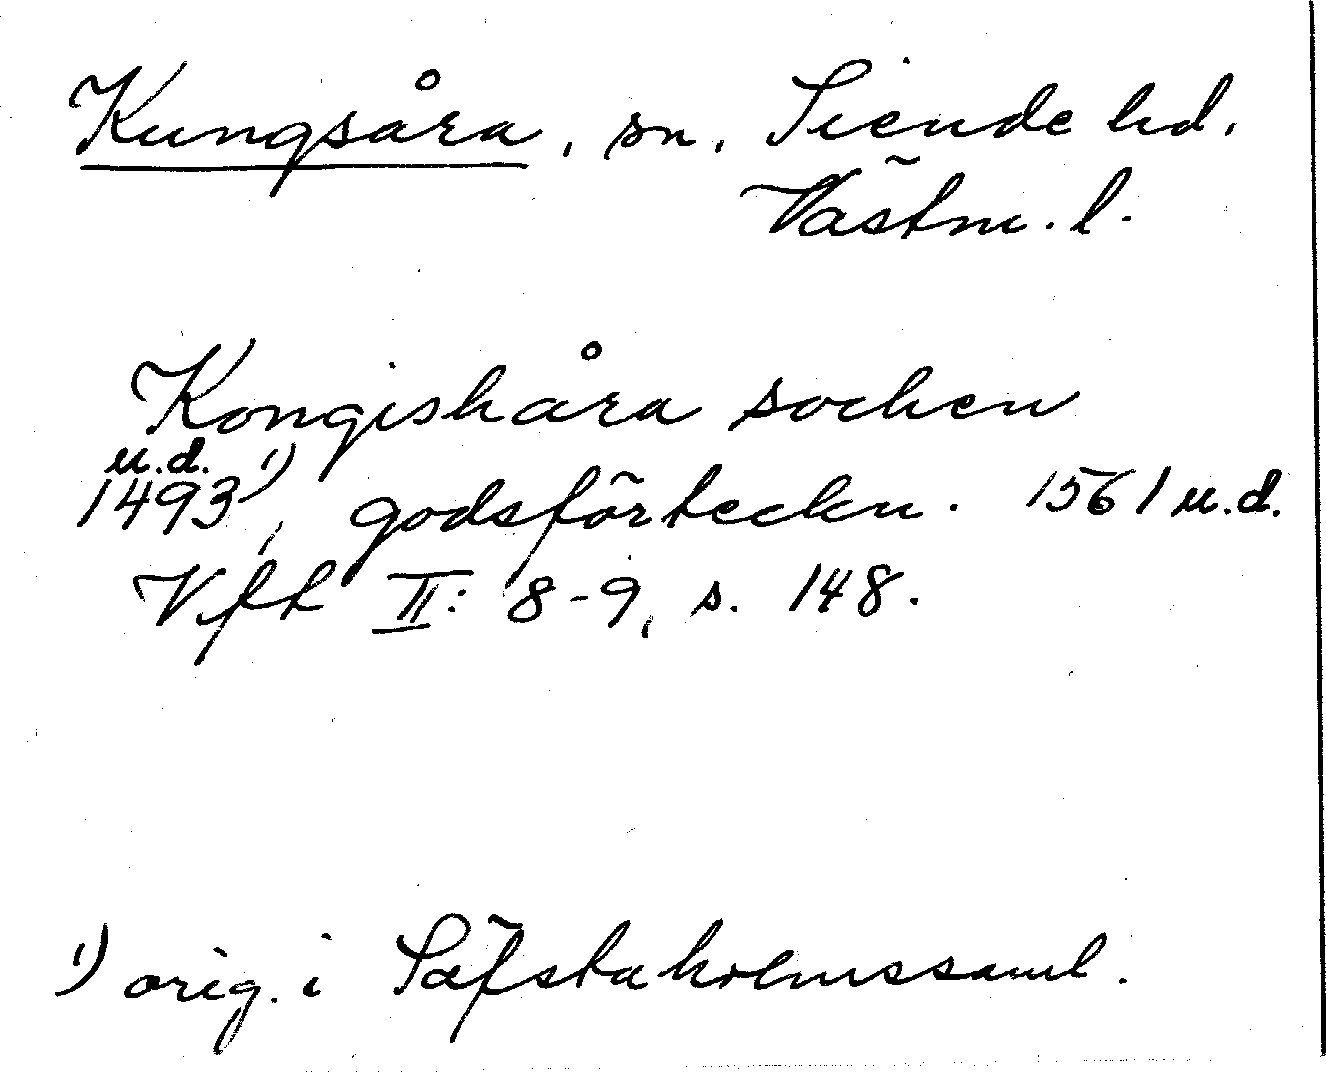 Kungsåra, sn, Siende hd.
Västm. l.
Kongishåra sochen
u.d.
1493¹⁾, godsförteckn. 1561 u.d.
Vfh II: 8-9, s. 148.
¹⁾ orig. i Säfstaholmssaml.